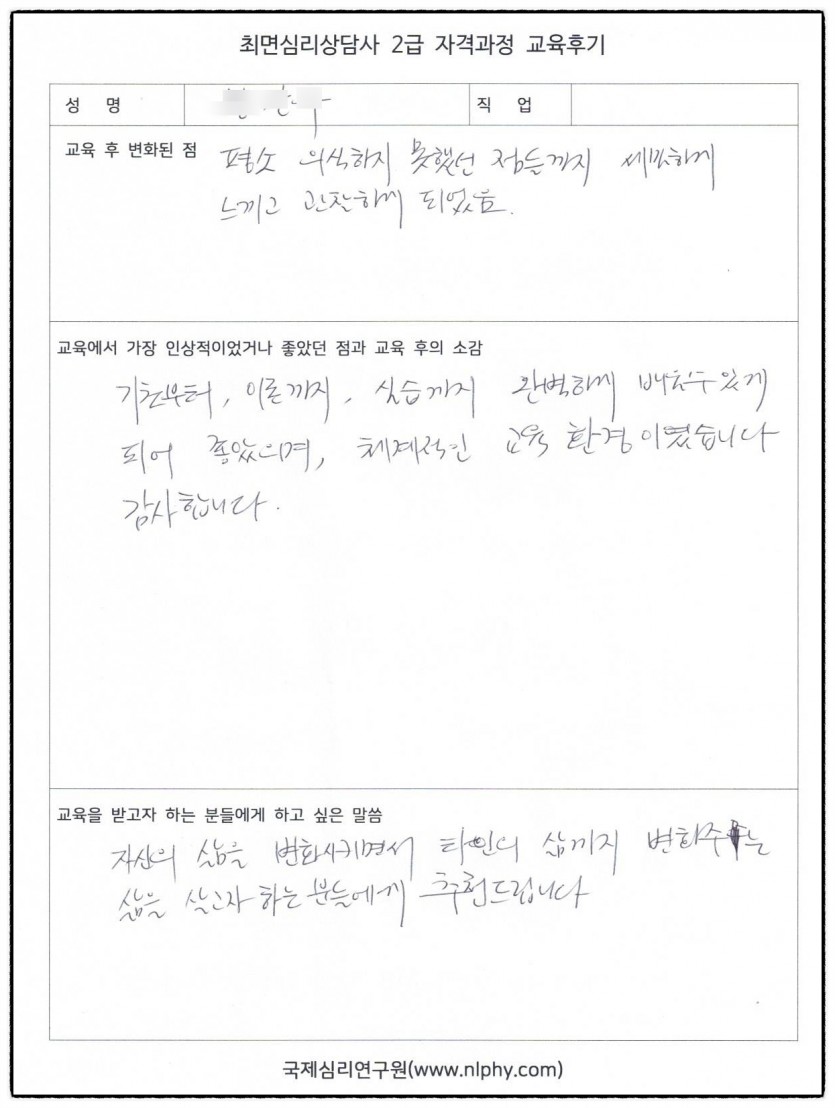 최면심리상담사 2급 자격과정 교육후기
성 명
직 업
교육 후 변화된 점
평소 의식하지 못했던 점들까지 세밀하게
느끼고 관찰하게 되었음.
교육에서 가장 인상적이었거나 좋았던 점과 교육 후의 소감
기초부터, 이론까지, 실습까지 완벽하게 배울수있게
되어 좋았으며, 체계적인 교육 환경이였습니다
감사합니다.
교육을 받고자 하는 분들에게 하고 싶은 말씀
자신의 삶을 변화시키면서 타인의 삶까지 변화주는
삶을 살고자 하는분들에게 추천드립니다
국제심리연구원(www.nlphy.com)